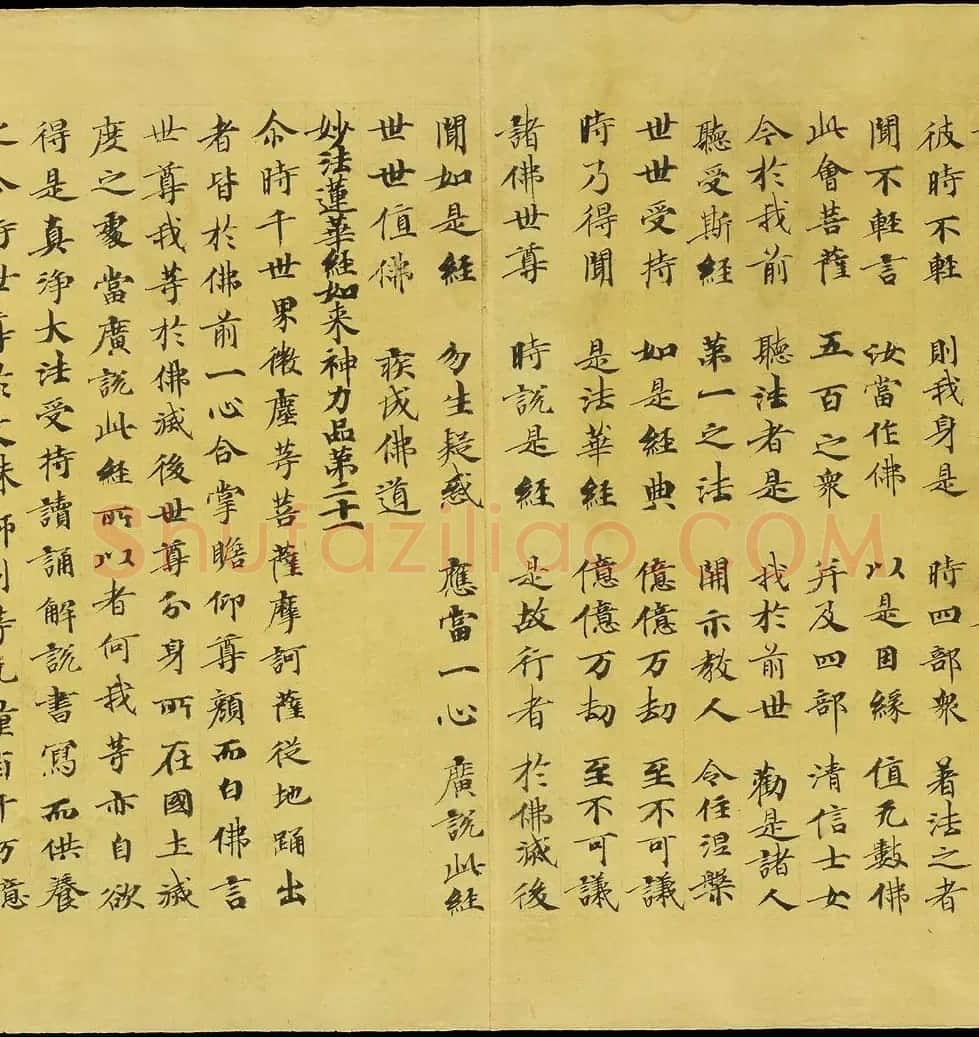 彼時不軽 則我身是 時四部衆 著法之者
聞不軽言 汝當作佛 以是因緣 值无數佛
此會菩薩 五百之衆 并及四部 清信士女
今於我前 聽法者是 我於前世 勸是諸人
聽受斯經 第一之法 開示教人 令住涅槃
世世受持 如是經典 億億万劫 至不可議
時乃得聞 是法華經 億億万劫 至不可議
諸佛世尊 時說是經 是故行者 於佛滅後
聞如是經 勿生疑惑 應當一心 廣說此經
世世值佛 疾成佛道
妙法蓮華經如来神力品第二十一
尒時千世界微塵等菩薩摩訶薩從地踊出
者皆於佛前一心合掌瞻仰尊顔而白佛言
世尊我等於佛滅後世尊分身所在國土滅
度之處當廣說此經所以者何我等亦自欲
得是真淨大法受持讀誦解說書寫而供養
Shufaziliao.COM